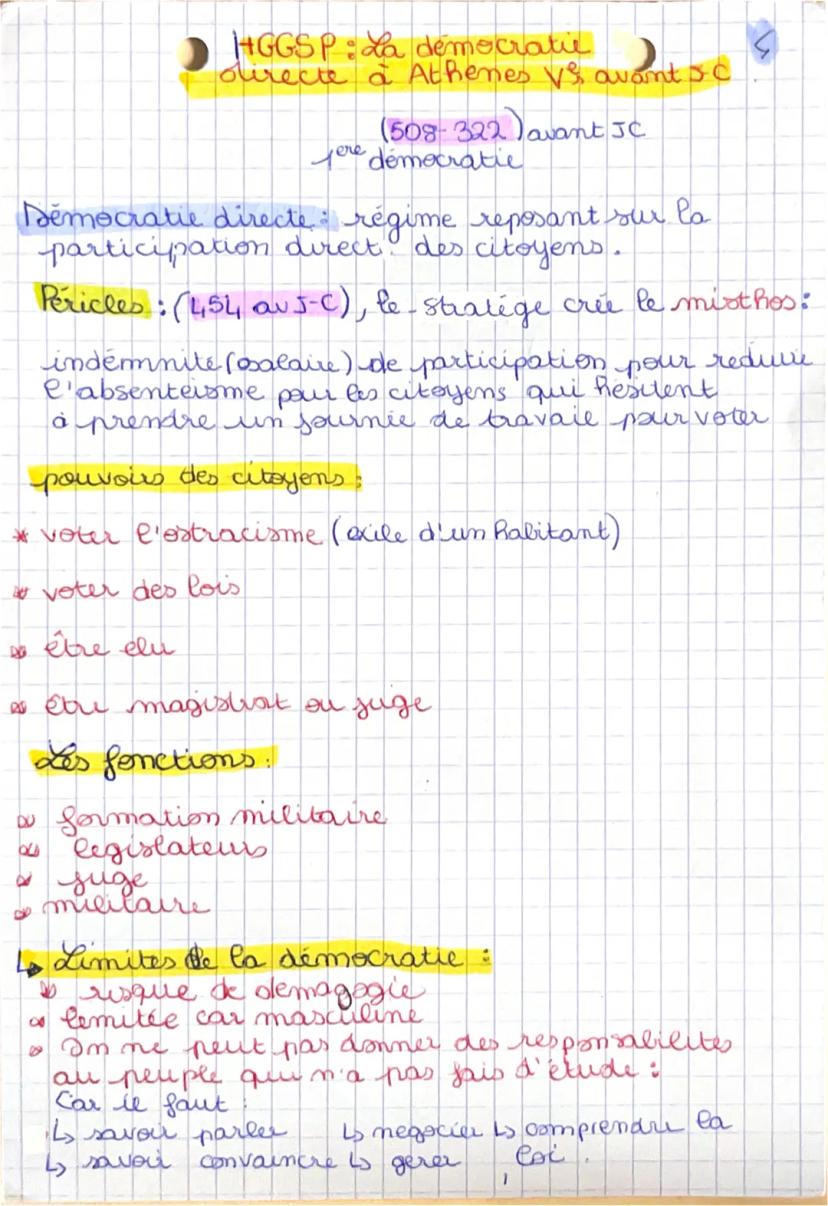 HGGSP : La démocratie
directe à Athènes Vs avant J-C
(508-322) avant JC
1ère démocratie
Démocratie directe : régime reposant sur la
participation direct. des citoyens.
Péricles : (454 av J-C), le stratége crée le misthos :
indémnité (salaire) de participation pour reduire
l'absentéisme pour les citoyens qui hésitent
à prendre un journie de travaie pour voter
pouvoirs des citoyens :
* voter l'ostracisme (exile d'un habitant)
* voter des lois
* être elu
* être magistrat ou juge
Les fonctions :
* formation militaire
* legislateurs
* juge
* militaire
↳ Limites de la démocratie :
* risque de demagogie
* limitée car masculine
* On ne peut pas donner des responsabilités
au peuple qui n'a pas fais d'étude :
Car il faut :
↳ savoir parler ↳ negocier ↳ comprendre la
↳ savoir convaincre ↳ gerer loi.